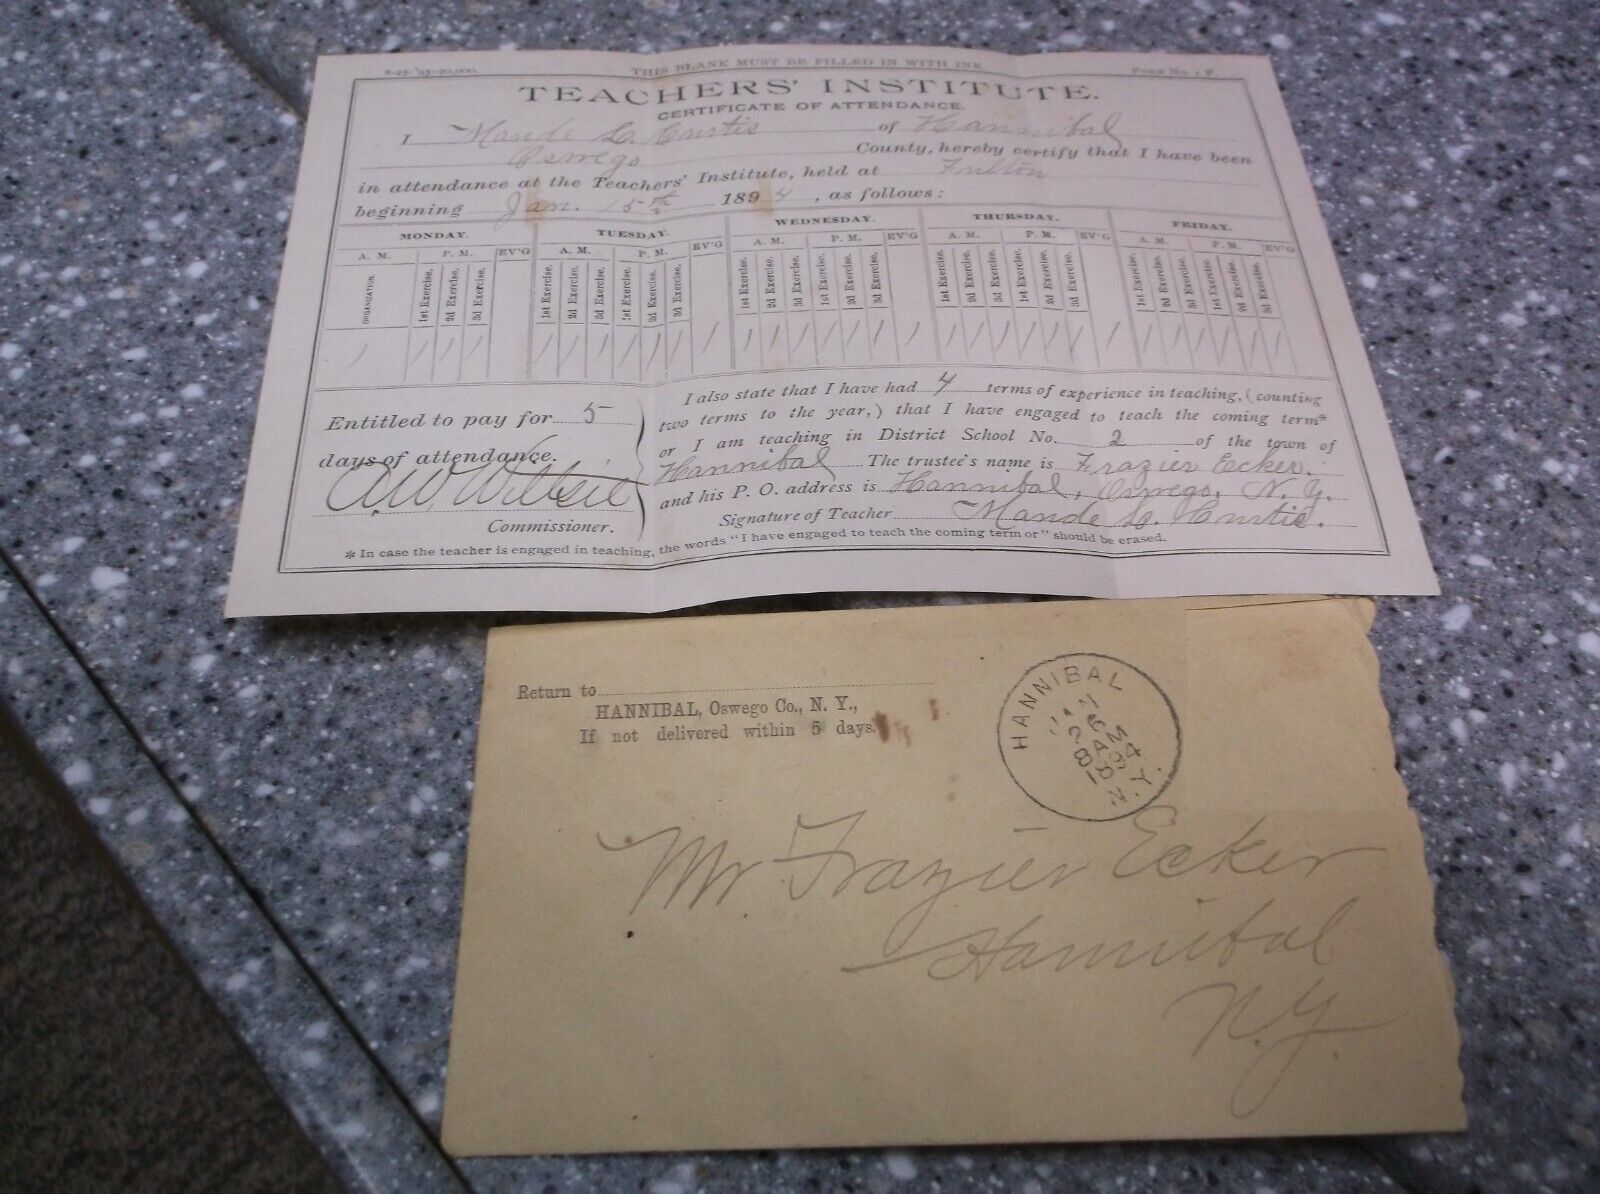 8-22-'93-20,000. THIS BLANK MUST BE FILLED IN WITH INK. FORM No. 1 F.
TEACHERS' INSTITUTE.
CERTIFICATE OF ATTENDANCE.
I Maude L. Curtis of Hannibal
Oswego County, hereby certify that I have been
in attendance at the Teachers' Institute, held at Fulton
beginning Jan. 15th 1894, as follows:
MONDAY. TUESDAY. WEDNESDAY. THURSDAY. FRIDAY.
A. M. P. M. EV'G A. M. P. M. EV'G A. M. P. M. EV'G A. M. P. M. EV'G A. M. P. M. EV'G
ORGANIZATION. 1st Exercise. 2d Exercise. 3d Exercise. 1st Exercise. 2d Exercise. 3d Exercise. 1st Exercise. 2d Exercise. 3d Exercise. 1st Exercise. 2d Exercise. 3d Exercise. 1st Exercise. 2d Exercise. 3d Exercise. 1st Exercise. 2d Exercise. 3d Exercise. 1st Exercise. 2d Exercise. 3d Exercise. 1st Exercise. 2d Exercise. 3d Exercise. 1st Exercise. 2d Exercise. 3d Exercise.
Entitled to pay for 5
days of attendance.
A. W.
Commissioner.
I also state that I have had 4 terms of experience in teaching, (counting
two terms to the year,) that I have engaged to teach the coming term*
or I am teaching in District School No. 2 of the town of
Hannibal The trustee's name is Frazier Ecker.
and his P. O. address is Hannibal, Oswego, N. Y.
Signature of Teacher Maude L. Curtis.
* In case the teacher is engaged in teaching, the words "I have engaged to teach the coming term or" should be erased.
Return to
HANNIBAL, Oswego Co., N. Y.,
If not delivered within 5 days.
HANNIBAL
JAN
26
8AM
1894
N.Y.
Mr. Frazier Ecker
Hannibal
N.Y.